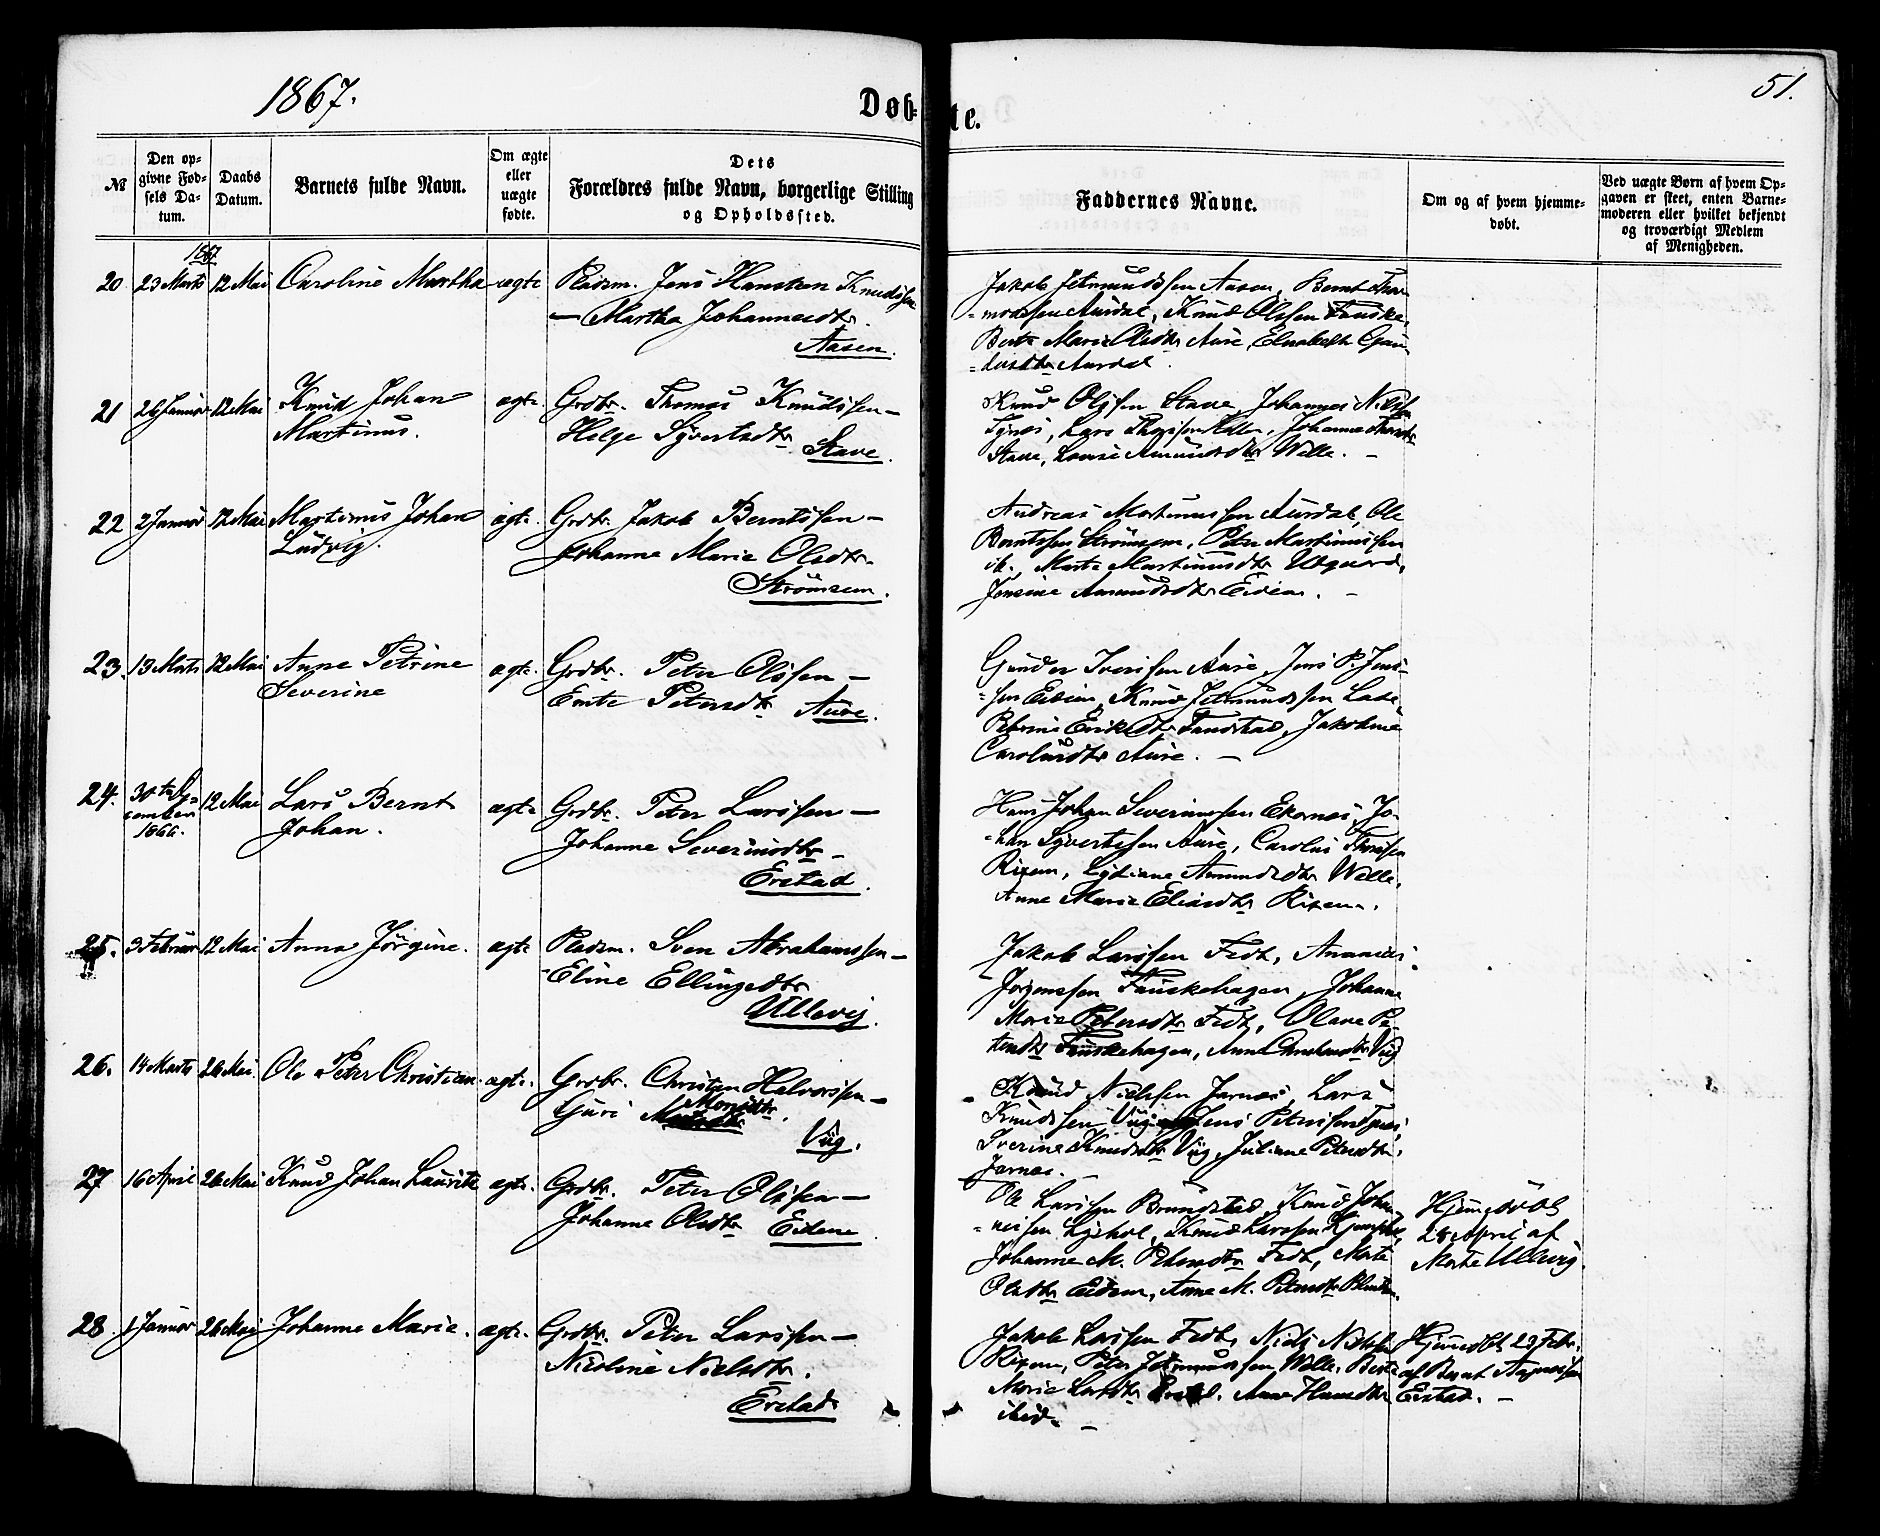 1867.
Døb-
te.
51.
№
Den op-
givne Fød-
sels Da-
tum.
Daabs
Datum.
Barnets fulde Navn.
Om ægte
eller
uægte
fødte.
Dets
Forældres fulde Navn, borgerlige Stilling
og Opholdssted.
Faddernes Navne.
Om og af hvem hjemme-
døbt.
Ved uægte Børn af hvem Op-
gaven er skeet, enten Barne-
moderen eller hvilket bekjendt
og troværdigt Medlem
af Menigheden.
1867.
20 23 Marts 12 Mai Caroline Martha ægte Pladsm. Jens Hansken Knudssen
— Martha Johannesdtr.
Aasen.
Jakob Jetmundssen Aasen, Bernt Thor-
=modssen Aurdal, Knud Olssen Fauske,
Berte Marie Olsdtr Aure, Elisabeth
Aurdal.
21 12 Mai Knud Johan
Martinus.
ægte Grdbr. Thomas Knudssen —
Helge Syvertsdtr.
Stave.
Knud Olssen Stave, Johannes
Tynes, Lars Johanne
Stave, Lovise Amundsdtr Welle. —
22 2 Januar 12 Mai Martinus Johan
Ludvig.
ægte. Grdbr. Jakob Berntssen —
Johanne Marie Olsdtr.
Strømsem.
Andreas Martinussen Aurdal, Ole
Berntssen Strømsem, Peter Martinussen
ib., Marte Martinusdtr Utgaard,
Jensine Amundsdtr Eidem. —
23. 13 Marts 12 Mai Anne Petrine
Severine
ægte. Grdbr. Peter Olssen —
Emte Petersdtr Aure.
Gunder Iverssen Aure, Jens P. Jens-
=sen Eidem, Knud Jetmundssen Lade,
Petrine Eriksdtr Tandstad, Jakobine
Carolusdtr Aure. —
24. 30te De-
cember
1866.
12 Mai Lars Bernt
Johan.
ægte Grdbr. Peter Larssen —
Johanne Severinsdtr —
Erstad.
Hans Johan Severinussen Ekornes, Jo-
=han Syvertssen Aure, Carolus Thorssen
Risem, Amundsdtr Welle,
Anne Marie Eliasdtr Risem.
25. Februar 12 Mai Anna Jørgine. ægte Pladsm. Sven Abrahamssen —
Eline Ellingsdtr
Ullavig.
Jakob Larssen Fedt, Ananias
Jørgenssen Fauskehagen, Johanne
Marie Petersdtr Fedt, Olave Pe-
tersdtr Fauskehagen, Anne Viig
26. 14 Marts 26 Mai. Ole Peter Christian. ægte. Grdbr. Christen Halvorssen —
Guri Monsdtr.
Viig.
Knud Nielssen Jarnes, Lars
Knudssen Viig, Jens Peterssen Tynes,
Iverine Knudsdtr Viig, Juliane Petersdtr,
Jarnes. —
27 16 April 26 Mai Knud Johan Lauritz ægte. Grdbr. Peter Olssen —
Johanne Olsdtr Eidem.
Ole Larssen Brundstad, Knud Johan-
=nessen Knud Larssen
Johanne M. Petersdtr Fedt, Marte
Olsdtr Eidem, Anne M. Petersdtr
Hjemmedøbt
28 April af
Marte Ullavig.
28. 1 Januar 26 Mai Johanne Marie. ægte. Grdbr. Peter Larssen —
Nicoline Nielsdtr.
Erstad.
Jakob Larssen Fedt, Niels Nielssen
Risem, Peter Jetmundssen Welle. Berte
Marie Larsdtr Erstad. Anne Hansdtr
ibid. —
Hjemmedøbt 23 Febr.
af Bernt
Erstad. —